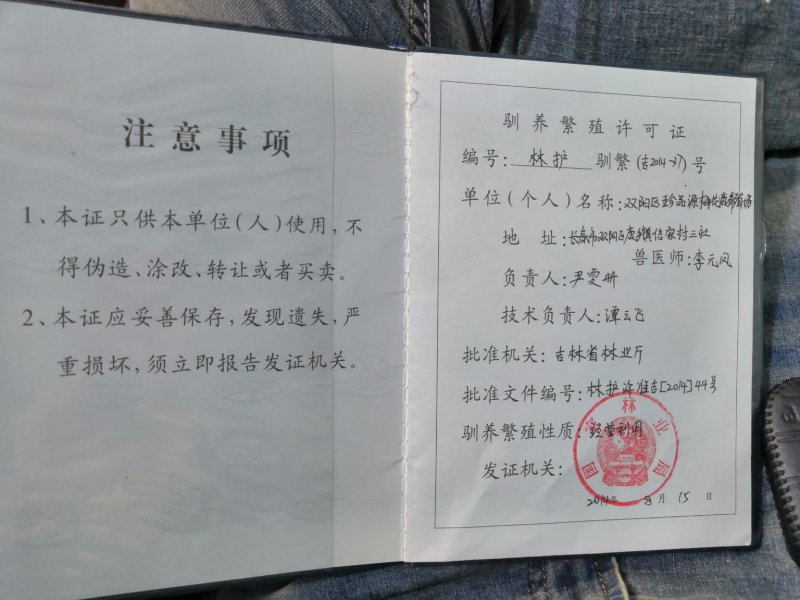 注意事项
1、本证只供本单位(人)使用,不
得伪造、涂改、转让或者买卖。
2、本证应妥善保存,发现遗失,严
重损坏,须立即报告发证机关。
驯养繁殖许可证
编号: 林护 驯繁(吉2014-37)号
单位(个人)名称:双阳区珍品源梅花鹿养殖场
地 址:长春市双阳区鹿乡镇信家村三社
兽医师:李元凤
负责人:尹雯册
技术负责人:谭云飞
批准机关:吉林省林业厅
批准文件编号:林护许准吉[2014]44号
驯养繁殖性质:经营利用
发证机关:
国家林业局
2014年 8月 15日